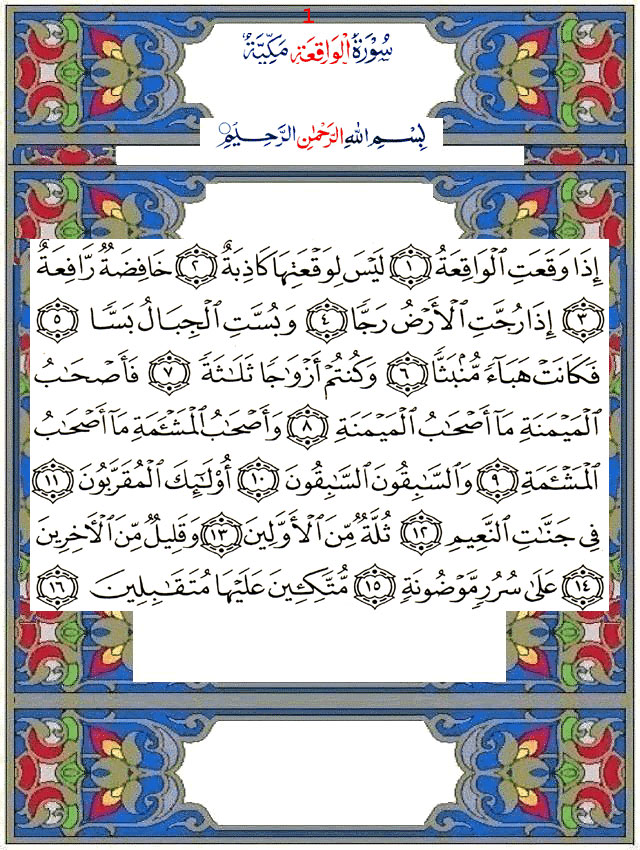 1
سُورَةُ الْوَاقِعَةِ مَكِّيَّةٌ
بِسْمِ اللهِ الرَّحْمٰنِ الرَّحِيمِ
إِذَا وَقَعَتِ الْوَاقِعَةُ ۝١ لَيْسَ لِوَقْعَتِهَا كَاذِبَةٌ ۝٢ خَافِضَةٌ رَّافِعَةٌ
۝٣ إِذَا رُجَّتِ الْأَرْضُ رَجًّا ۝٤ وَبُسَّتِ الْجِبَالُ بَسًّا ۝٥
فَكَانَتْ هَبَاءً مُّنْبَثًّا ۝٦ وَكُنْتُمْ أَزْوَاجًا ثَلَاثَةً ۝٧ فَأَصْحَابُ
الْمَيْمَنَةِ مَا أَصْحَابُ الْمَيْمَنَةِ ۝٨ وَأَصْحَابُ الْمَشْئَمَةِ مَا أَصْحَابُ
الْمَشْئَمَةِ ۝٩ وَالسَّابِقُونَ السَّابِقُونَ ۝١٠ أُوْلَٰئِكَ الْمُقَرَّبُونَ ۝١١
فِي جَنَّاتِ النَّعِيمِ ۝١٢ ثُلَّةٌ مِّنَ الْأَوَّلِينَ ۝١٣ وَقَلِيلٌ مِّنَ الْآخِرِينَ
۝١٤ عَلَىٰ سُرُرٍ مَّوْضُونَةٍ ۝١٥ مُّتَّكِئِينَ عَلَيْهَا مُتَقَابِلِينَ ۝١٦